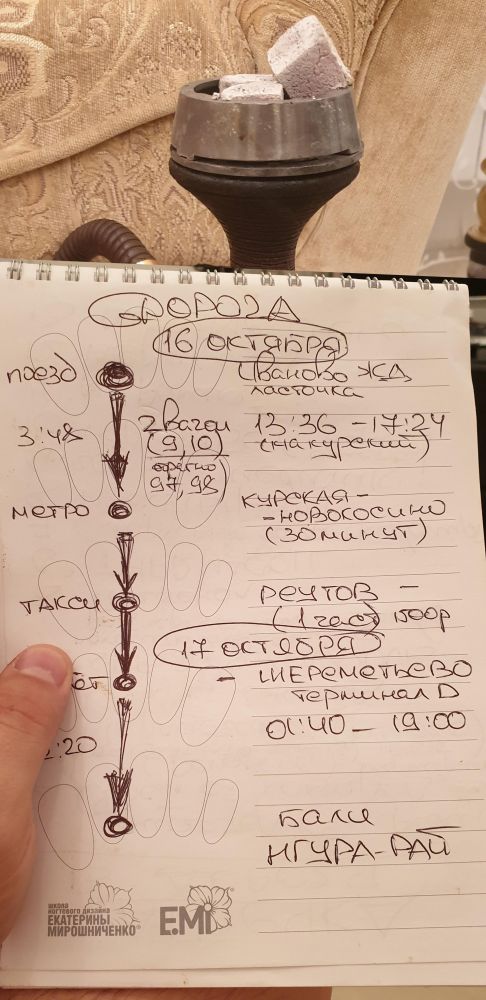 ДОРОГА
16 ОКТЯБРЯ
поезд
Иваново ЖД
ласточка
3:48
2 вагон
(9,10)
обратно
97,98
13:36 - 17:24
(на курский)
МЕТРО
КУРСКАЯ -
- НОВОКОСИНО
(30 минут)
ТАКСИ
РЕУТОВ -
(1 час) 1500р
17 ОКТЯБРЯ
- ШЕРЕМЕТЬЕВО
терминал D
:20
01:40 - 19:00
Бали
НГУРА-РАЙ
школа
ногтевого дизайна
ЕКАТЕРИНЫ
МИРОШНИЧЕНКО®
E.Mi®